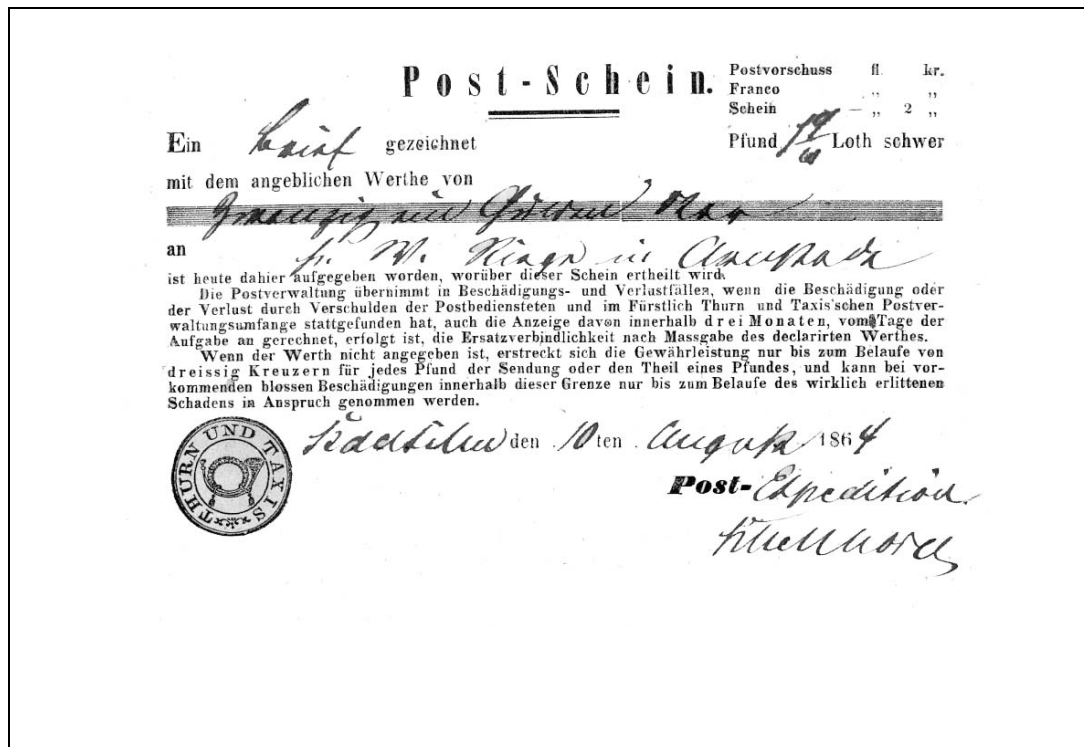 Post-Schein.
Postvorschuss fl. kr.
Franco „ „
Schein — „ 2 „
Ein Brief gezeichnet
Pfund Loth schwer
mit dem angeblichen Werthe von
Zwanzig ein Gulden
an W. in Arnstadt
ist heute dahier aufgegeben worden, worüber dieser Schein ertheilt wird.
Die Postverwaltung übernimmt in Beschädigungs- und Verlustfällen, wenn die Beschädigung oder
der Verlust durch Verschulden der Postbediensteten und im Fürstlich Thurn und Taxis'schen Postver-
waltungsumfange stattgefunden hat, auch die Anzeige davon innerhalb drei Monaten, vom Tage der
Aufgabe an gerechnet, erfolgt ist, die Ersatzverbindlichkeit nach Massgabe des declarirten Werthes.
Wenn der Werth nicht angegeben ist, erstreckt sich die Gewährleistung nur bis zum Belaufe von
dreissig Kreuzern für jedes Pfund der Sendung oder den Theil eines Pfundes, und kann bei vor-
kommenden blossen Beschädigungen innerhalb dieser Grenze nur bis zum Belaufe des wirklich erlittenen
Schadens in Anspruch genommen werden.
THURN UND TAXIS
Stadtilm den 10ten August 1864
Post-Expedition